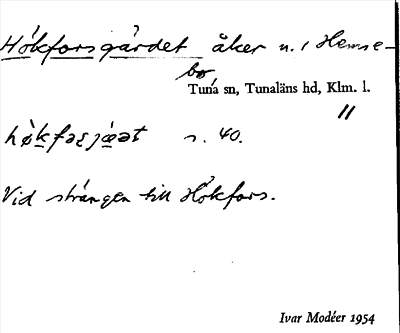 Hökforsgärdet åker u. / Hemse-
bo
Tuna sn, Tunaläns hd, Klm. l.
"
s. 40.
Vid strängen till Hökfors.
Ivar Modéer 1954